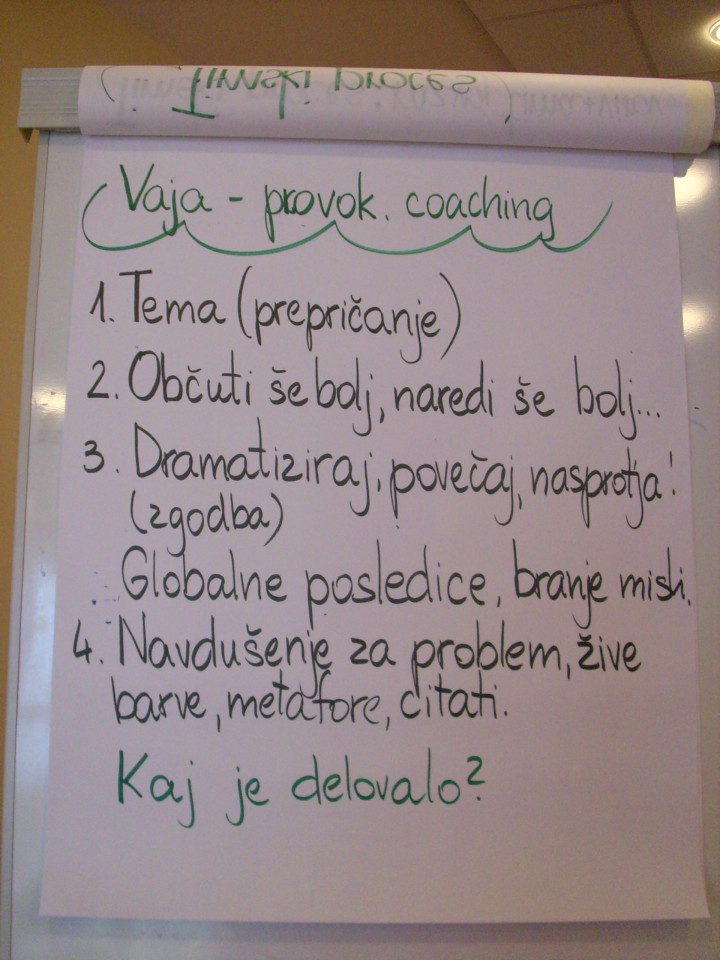 (Timski proces,
Vaja - provok. coaching
1. Tema (prepričanje)
2. Občuti še bolj, naredi še bolj...
3. Dramatiziraj, povečaj, nasprotja!
(zgodba)
Globalne posledice, branje misli.
4. Navdušenje za problem, žive
barve, metafore, citati.
Kaj je delovalo?